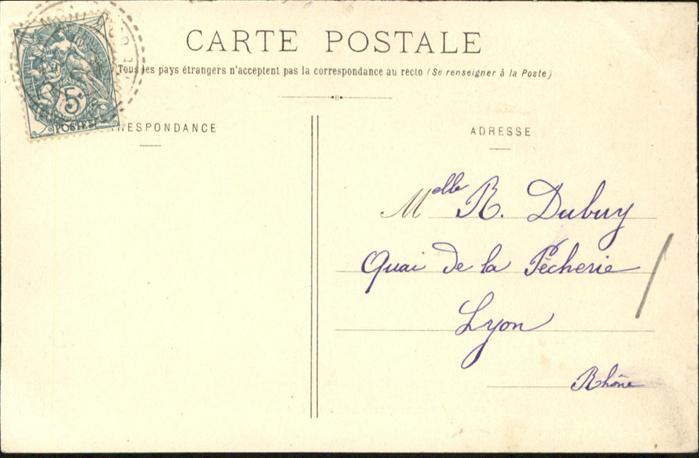 CARTE POSTALE
Tous les pays étrangers n'acceptent pas la correspondance au recto (Se renseigner à la Poste)
5c
POSTES
RESPONDANCE
ADRESSE
Melle R. Dubuy
Quai de la Pêcherie
Lyon
Rhône